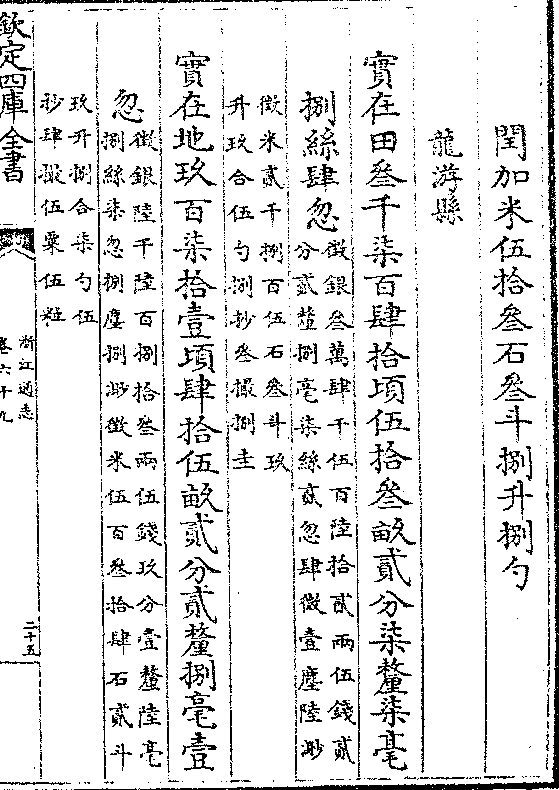 閏加米伍拾叁石叁斗捌升捌勺
龍游縣
實在田叁千柒百肆拾頃伍拾叁畝貳分柒釐柒毫
捌絲肆忽
徵銀叁萬肆千伍百陸拾貳兩伍錢貳
分貳釐捌毫柒絲貳忽肆微壹塵陸渺
徵米貳千捌百伍石叁斗玖
升玖合伍勺捌抄叁撮捌圭
實在地玖百柒拾壹頃肆拾伍畝貳分貳釐捌毫壹
忽
徵銀陸千陸百捌拾叁兩伍錢玖分壹釐陸毫
捌絲柒忽捌塵捌渺徵米伍百叁拾肆石貳斗
玖升捌合柒勺伍
抄肆撮伍粟伍粒
欽定四庫全書
浙江通志
卷六十九
二十五